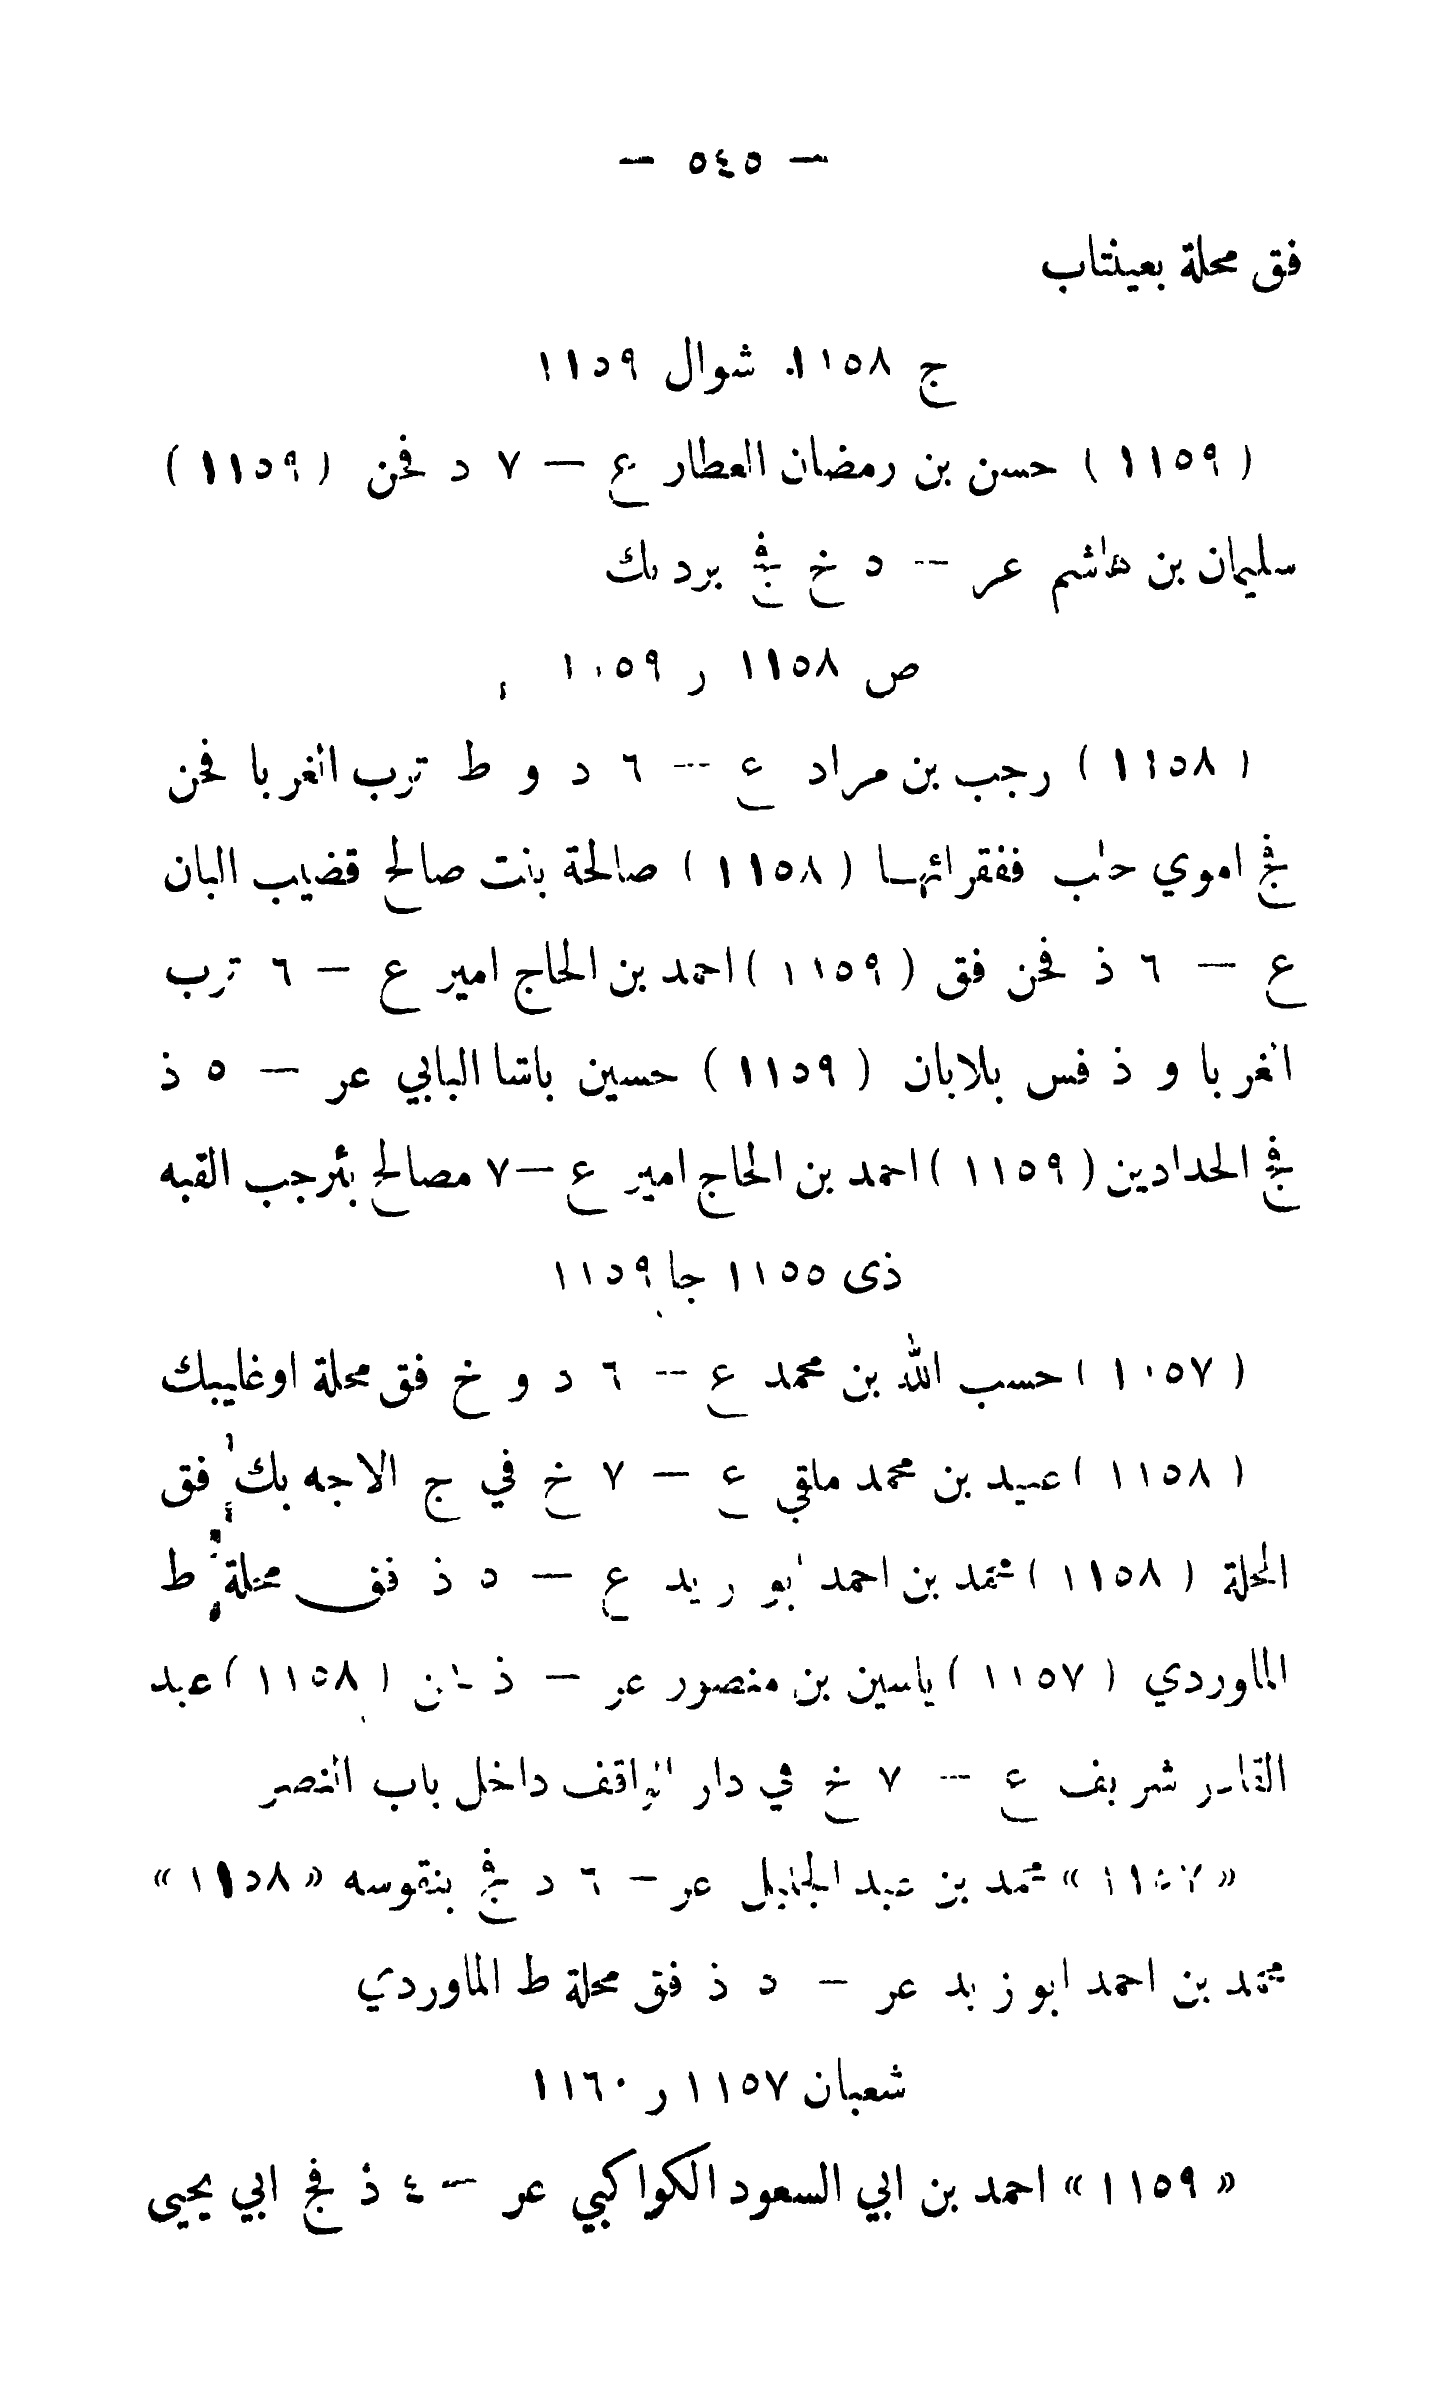 — ٥٤٥ —
فق محلة بعينتاب
ج ١١٥٨ شوال ١١٥٩
( ١١٥٩ ) حسن بن رمضان العطار ع — ٧ د فحن ( ١١٥٩ )
سليمان بن هاشم عر — د خ فج بردبك
ص ١١٥٨ ر ١٠٥٩
( ١١٥٨ ) رجب بن مراد ع — ٦ د و ط ترب الغربا فحن
فج اموي حلب ففقرائها ( ١١٥٨ ) صالحة بنت صالح قضيب البان
ع — ٦ ذ فحن فق ( ١١٥٩ ) احمد بن الحاج امير ع — ٦ ترب
الغربا و ذ فس بلابان ( ١١٥٩ ) حسين باشا البابي عر — ٥ ذ
فج الحدادين ( ١١٥٩ ) احمد بن الحاج امير ع — ٧ مصالح بئرجب القبه
ذى ١١٥٥ جا ١١٥٩
( ١٠٥٧ ) حسب الله بن محمد ع — ٦ د و خ فق محلة اوغليبك
( ١١٥٨ ) عبيد بن محمد ملقي ع — ٧ خ في ج الاجه بك فق
المحلة ( ١١٥٨ ) محمد بن احمد ابو زيد ع — ٥ ذ فق محلة ط
الماوردي ( ١١٥٧ ) ياسين بن منصور عر — ذ ( ١١٥٨ ) عبد
القادر شريف ع — ٧ خ في دار الواقف داخل باب النصر
« ١١٥٧ » محمد بن عبد الجليل عر — ٦ د فج بنقوسه « ١١٥٨ »
محمد بن احمد ابو زيد عر — ٥ ذ فق محلة ط الماوردي
شعبان ١١٥٧ ر ١١٦٠
« ١١٥٩ » احمد بن ابي السعود الكواكبي عر — ٤ ذ فج ابي يحيى